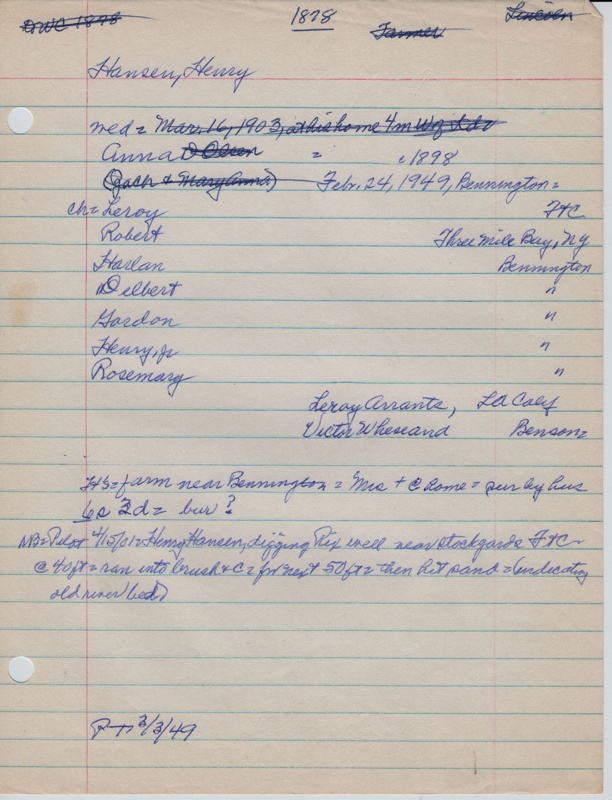 DWC 1898 1878 Farmer Lincoln
Hansen, Henry
med = Mar. 16, 1903, at his home 4m W of
Anna D Olsen = c1898
(Zach & Mary Anna) Febr. 24, 1949, Bennington =
ch = Leroy FtC
Robert Three Mile Bay, NY
Harlan Bennington
Delbert "
Gordon "
Henry, jr "
Rosemary "
Leroy Arrants, LA Calif
Victor Wheseand Benson =
HS = farm near Bennington = Mrs + @ home = sur by hus
6s 2d = bur?
NB = Pilot 4/15/01 = Henry Hansen, digging well near stockyards FtC
@ 40 ft = ran into brush & C = for next 50 ft = then hit sand = (indicating
old river bed)
P-T 3/3/49